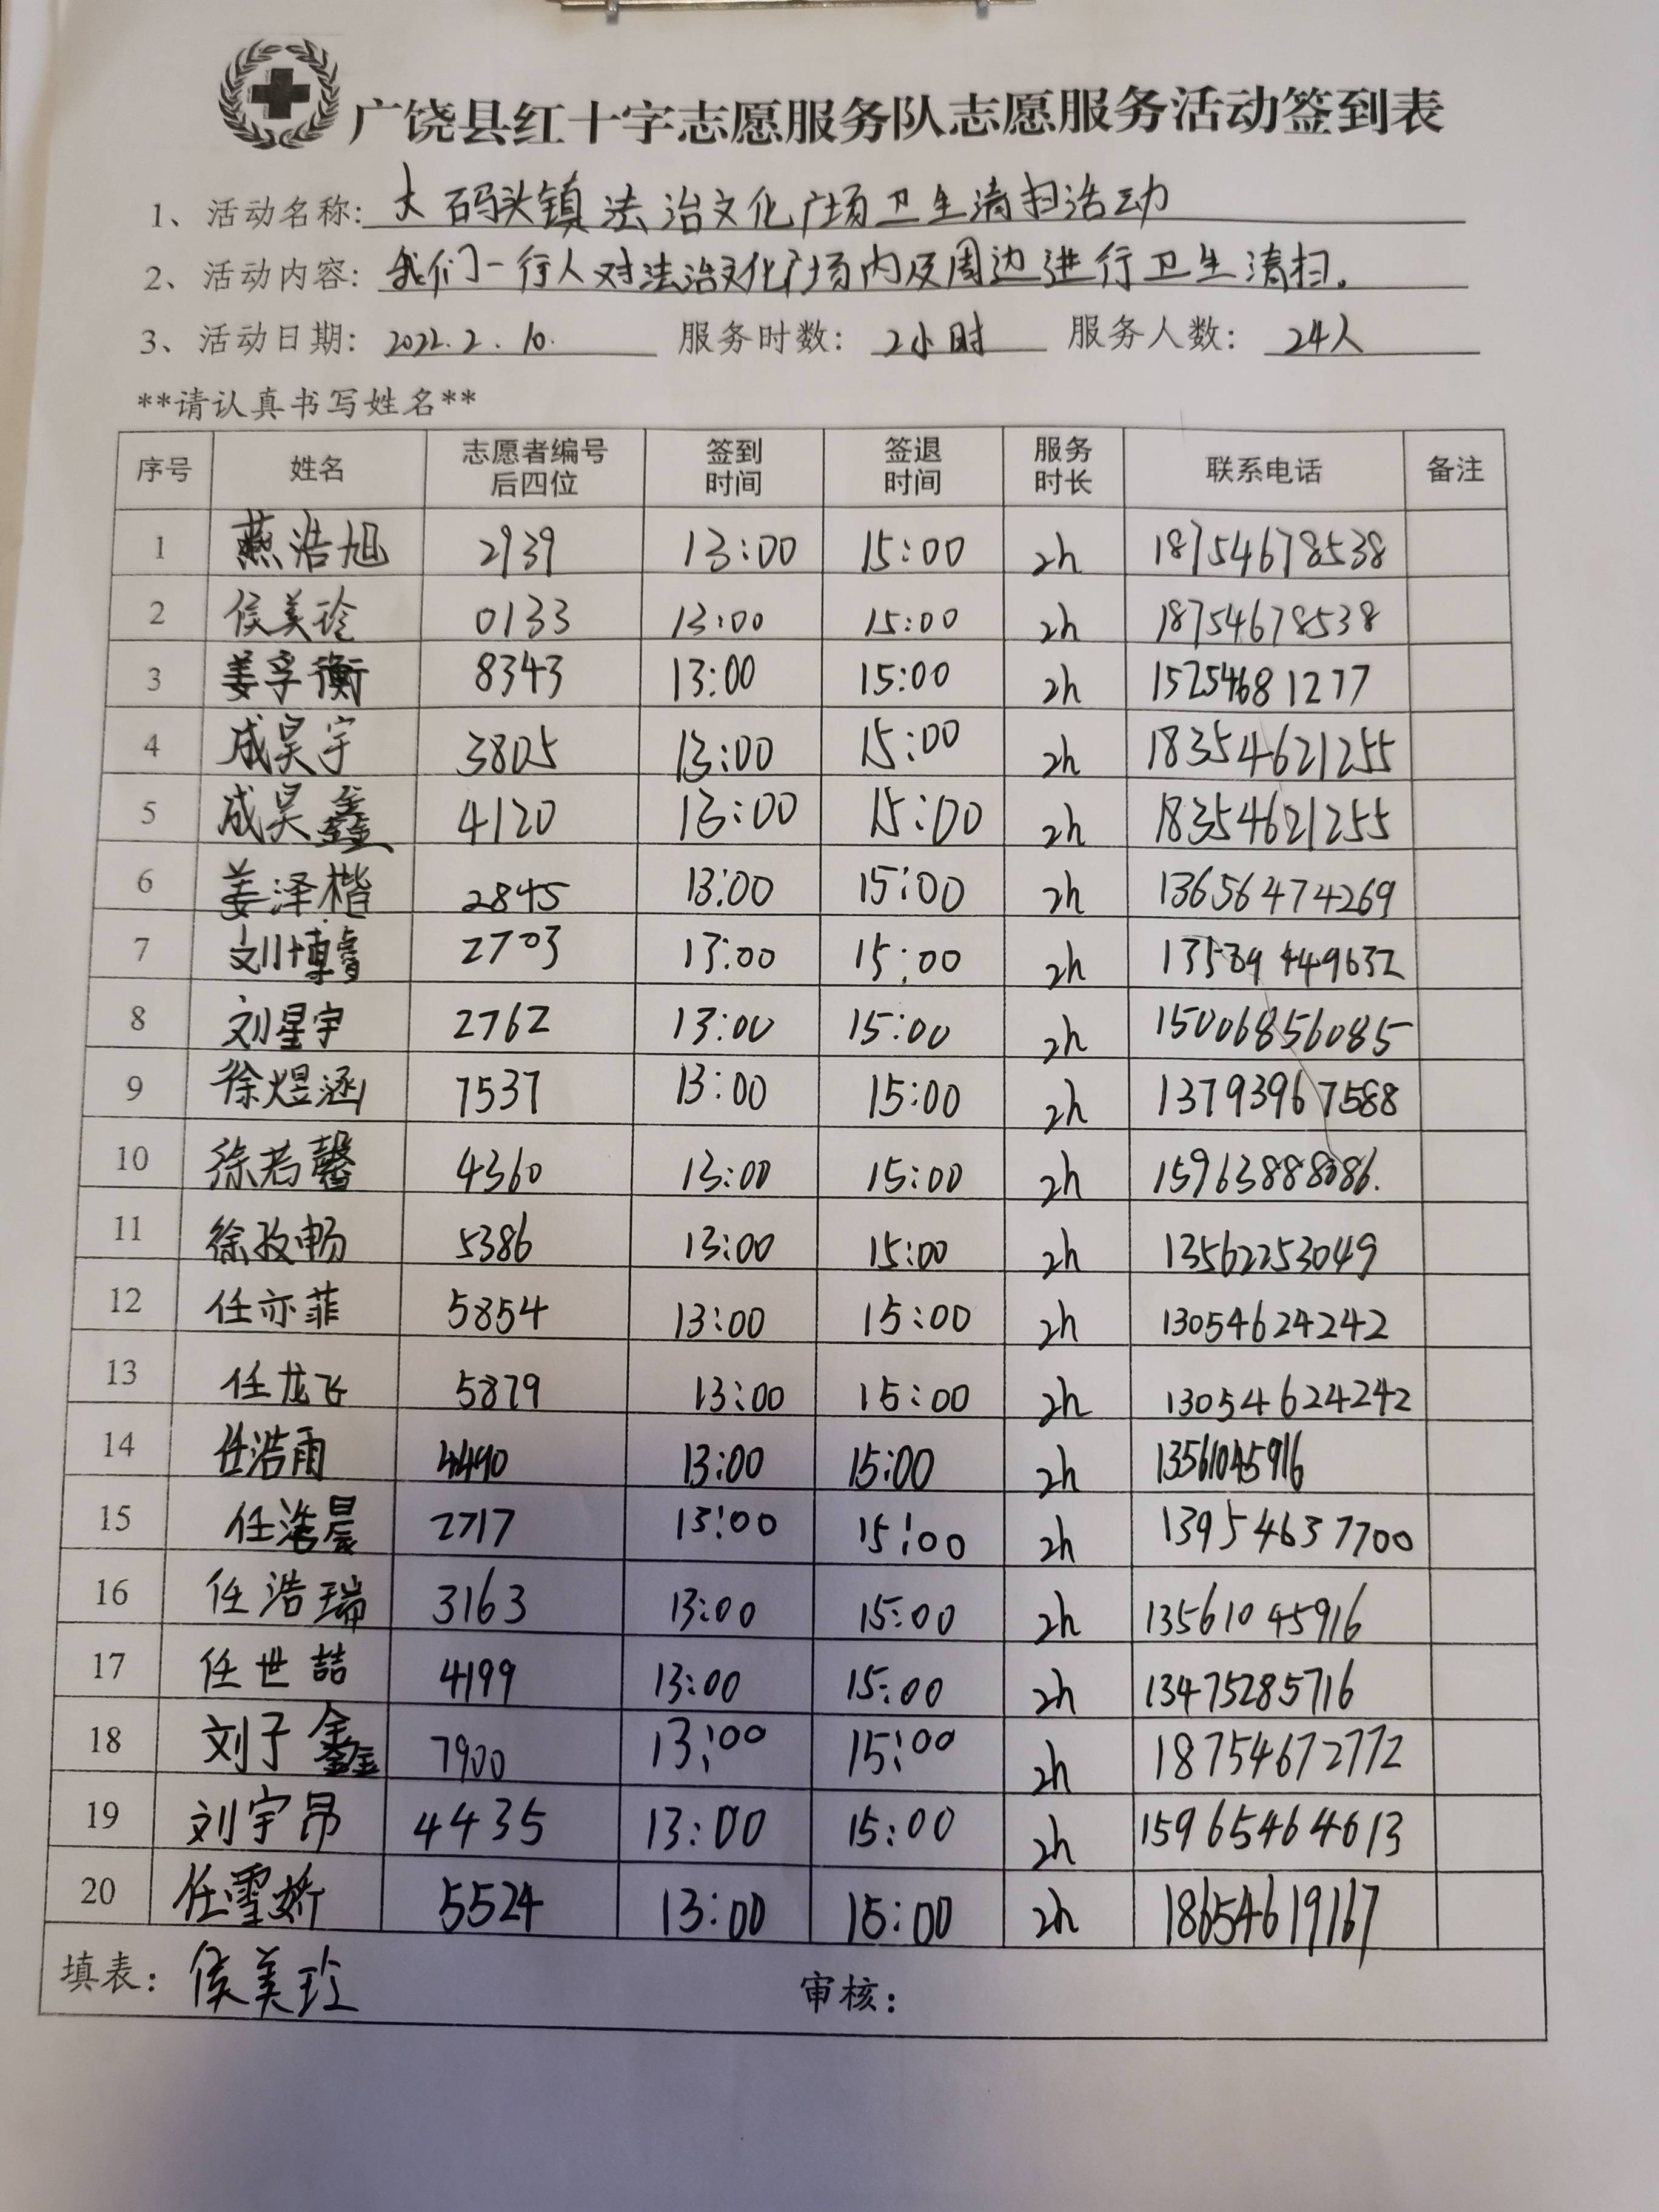 广饶县红十字志愿服务队志愿服务活动签到表
1、活动名称: 大码头镇法治文化广场卫生清扫活动
2、活动内容: 我们一行人对法治文化广场内及周边进行卫生清扫。
3、活动日期: 2022.2.10. 服务时数: 2小时 服务人数: 24人
**请认真书写姓名**
序号 姓名 志愿者编号后四位 签到时间 签退时间 服务时长 联系电话 备注
1 燕浩旭 2939 13:00 15:00 2h 18754678538
2 侯美玲 0133 13:00 15:00 2h 18754678538
3 姜孚衡 8343 13:00 15:00 2h 15254681277
4 成昊宇 3805 13:00 15:00 2h 18354621255
5 成昊鑫 4120 13:00 15:00 2h 18354621255
6 姜泽楷 2845 13:00 15:00 2h 13656474269
7 刘博睿 2703 13:00 15:00 2h 13589449632
8 刘星宇 2762 13:00 15:00 2h 15006856085
9 徐煜涵 7537 13:00 15:00 2h 13793967588
10 徐若馨 4360 13:00 15:00 2h 15963888086.
11 徐孜畅 5386 13:00 15:00 2h 13562253049
12 任亦菲 5854 13:00 15:00 2h 13054624242
13 任龙飞 5879 13:00 15:00 2h 13054624242
14 任浩雨 4490 13:00 15:00 2h 13561045916
15 任浩晨 2717 13:00 15:00 2h 13954637700
16 任浩瑞 3163 13:00 15:00 2h 13561045916
17 任世喆 4199 13:00 15:00 2h 13475285716
18 刘子鑫 7900 13:00 15:00 2h 18754672772
19 刘宇昂 4435 13:00 15:00 2h 15965464613
20 任雪娇 5524 13:00 15:00 2h 18654619167
填表: 侯美玲 审核: